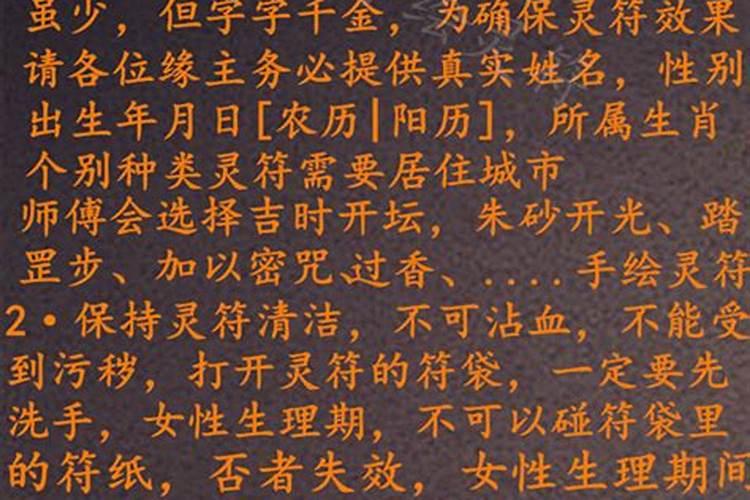 虽少，但字字千金，为确保灵符效果
请各位缘主务必提供真实姓名，性别
出生年月日[农历|阳历]，所属生肖
个别种类灵符需要居住城市
师傅会选择吉时开坛，朱砂开光、踏
罡步、加以密咒、过香、....手绘灵符
2·保持灵符清洁，不可沾血，不能受
到污秽，打开灵符的符袋，一定要先
洗手，女性生理期，不可以碰符袋里
的符纸，否者失效，女性生理期间